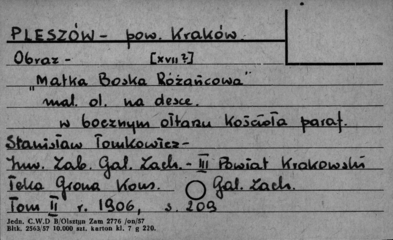 PLESZÓW - pow. Kraków.
Obraz - [XVII ?]
"Matka Boska Różańcowa"
mal. ol. na desce.
w bocznym ołtarzu Kościoła paraf.
Stanisław Tomkowicz -
Inw. Zab. Gal. Zach. - III Powiat Krakowski
Teka Grona Kons. Gal. Zach.
Tom II r. 1906, s. 209
Jedn. C.W.D B/Olsztyn Zam 2776 /on/57
Bltk. 2563/57 10.000 szt. karton kl. 7 g 220.